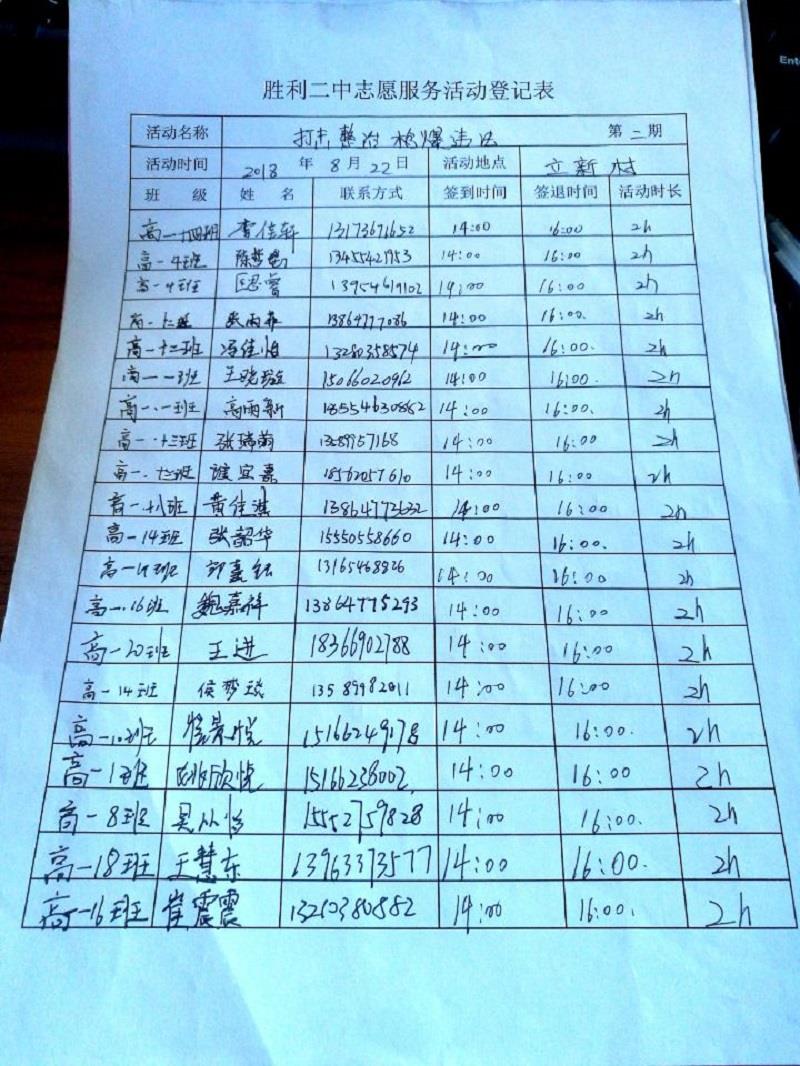 胜利二中志愿服务活动登记表
活动名称 打击整治枪爆违法 第二期
活动时间 2018 年 8 月 22 日 活动地点 立新村
班 级 姓 名 联系方式 签到时间 签退时间 活动时长
高一十四班 李佳轩 13173671652 14:00 16:00 2h
高一4班 陈梦 13455421753 14:00 16:00 2h
高一4班 睿 13954619102 14:00 16:00 2h
高一十二班 张雨菲 13864777086 14:00 16:00. 2h
高一十二班 冯佳怡 13280358574 14:00 16:00. 2h
高一一班 王晓璇 15066020962 14:00 16:00. 2h
高一.一班 高雨新 18554630882 14:00 16:00. 2h
高一.十三班 张瑞萌 14:00 16:00 2h
高一.十三班 谯宜嘉 18562057610 14:00 16:00 2h
高一十八班 黄佳淇 13864773632 14:00 16:00 2h
高一14班 张韶华 15550558660 14:00 16:00. 2h
高一 班 13165468826 14:00 16:00 2h
高一.16班 魏嘉祥 13864775293 14:00 16:00 2h
高一20班 王进 18366902788 14:00 16:00 2h
高一14班 侯梦琰 13589982011 14:00 16:00 2h
高一10班 景悦 15166249178 14:00 16:00. 2h
高一1班 姚欣悦 1516238002. 14:00 16:00 2h
高一8班 吴从怡 15552759828 14:00 16:00. 2h
高一18班 王慧东 13963373577 14:00 16:00. 2h
高一16班 崔震震 13210380882 14:00 16:00. 2h
Ente